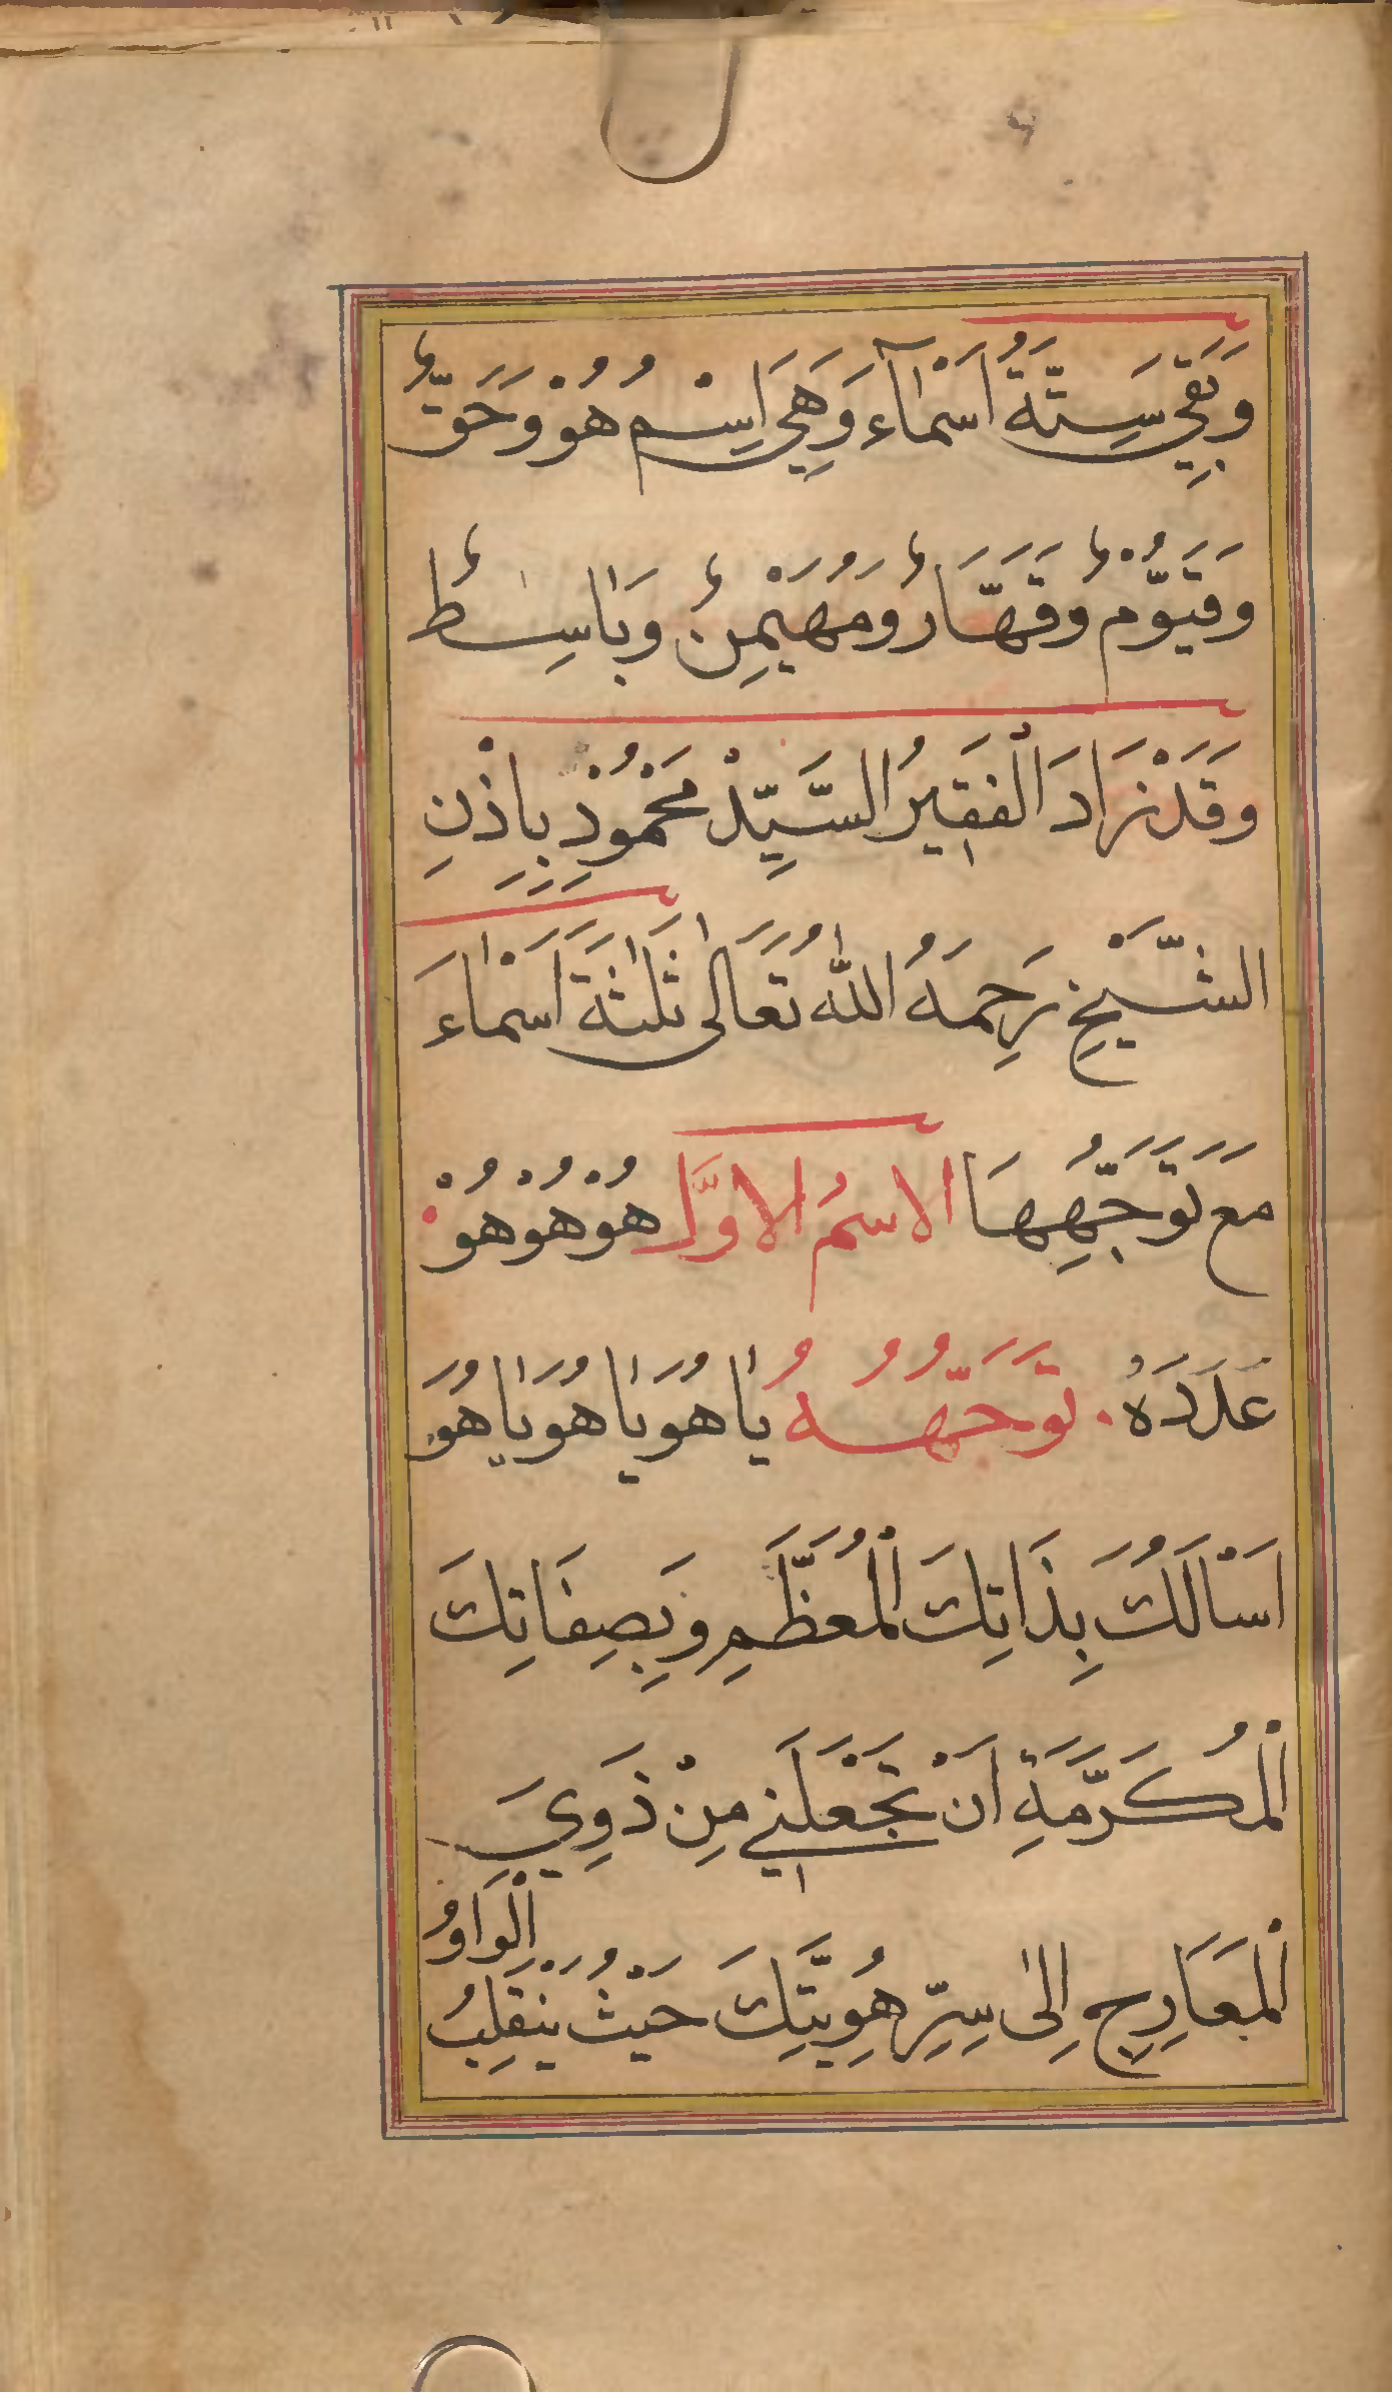 وَبَقِيَ سِتَّةُ اَسْمَآءٍ وَهِيَ اِسْمُ هُوْ وَحَقٌّ
وَقَيُّوْمٌ وَقَهَّارٌ وَمُهَيْمِنٌ وَبَاسِطٌ
وَقَدْ زَادَ الْفَقِيرُ السَّيِّدْ مَحْمُوْدْ بِاِذْنِ
الشَّيْخِ رَحِمَهُ اللّٰهُ تَعَالٰى ثَلٰثَةَ اَسْمَاءَ
مَعَ تَوَجُّهِهَا الاسمُ الاوَّل هُوْ هُوْ هُوْ
عَدَدَهُ . تَوَجُّهُهُ يَا هُوَ يَا هُوَ يَا هُوَ
اَسْاَلُكَ بِذَاتِكَ الْمُعَظَّمِ وَبِصِفَاتِكَ
الْمُكَرَّمَةِ اَنْ تَجْعَلَنِي مِنْ ذَوِي
الْمَعَارِجِ اِلٰى سِرِّ هُوِيَّتِكَ حَيْثُ يَنْقَلِبُ
الْوَاوُ